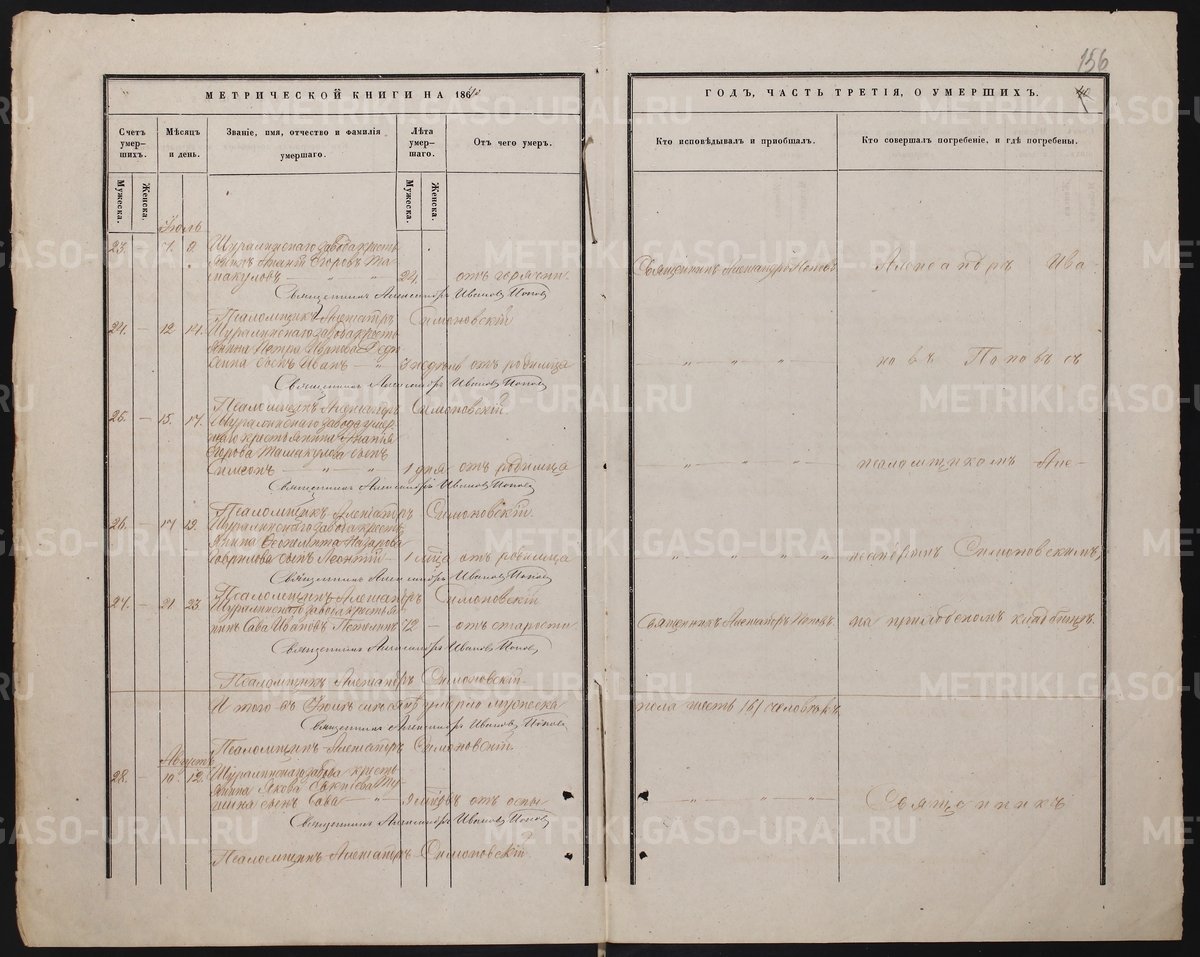 156
МЕТРИЧЕСКОЙ КНИГИ НА 186
ГОДЪ, ЧАСТЬ ТРЕТІЯ, О УМЕРШИХЪ.
Счетъ умер-шихъ.
Мѣсяцъ и день.
Званіе, имя, отчество и фамилія умершаго.
Лѣта умер-шаго.
Отъ чего умеръ.
Кто исповѣдывалъ и пріобщалъ.
Кто совершалъ погребеніе, и гдѣ погребены.
Мужеска.
Женска.
Мужеска.
Женска.
Іюль
23. 7. 9. Шуралинскаго завода кресть
янинъ Ананій Егоровъ Та
макуловъ 24. отъ горячки
Священникъ Александръ Поповъ
Александръ Ива-
Священникъ Александръ Ивановъ Поповъ
Псаломщикъ Александръ Симоновскій
24. 12 14. Шуралинскаго завода кресть
янина Петра
сынъ Иванъ отъ родимца
новъ Поповъ съ
Священникъ Александръ Ивановъ Поповъ
Псаломщикъ Александръ Симоновскій.
25. 15. 17. Шуралинскаго завода умер
шаго крестьянина Ананія
Егорова Тамакулова сынъ
Симеонъ 1 дня отъ родимца
псаломщикомъ Але-
Священникъ Александръ Ивановъ Поповъ
Псаломщикъ Александръ Симоновскій.
26. 17 19. Шуралинскаго завода кресть
янина Назарова
Гаврилова сынъ Леонтій 1 мѣсца отъ родимца
ксандромъ Симоновскимъ,
Священникъ Александръ Ивановъ Поповъ
Псаломщикъ Александръ Симоновскій
27. 21 23. Шуралинскаго завода крестья
нинъ Сава Ивановъ 72 отъ старости
Священникъ Александръ Поповъ.
на приходскомъ кладбищѣ.
Священникъ Александръ Ивановъ Поповъ
Псаломщикъ Александръ Симоновскій.
И того въ Іюлѣ мѣсяцѣ умерло мужеска
пола шесть /6/ человѣкъ.
Священникъ Александръ Ивановъ Поповъ
Псаломщикъ Александръ Симоновскій.
Августъ
28. 10. 12. Шуралинскаго завода кресть
янина Якова
сынъ Сава 9 мѣсцовъ отъ оспы
Священникъ
Священникъ Александръ Ивановъ Поповъ
Псаломщикъ Александръ Симоновскій.
METRIKI.GASO-URAL.RU